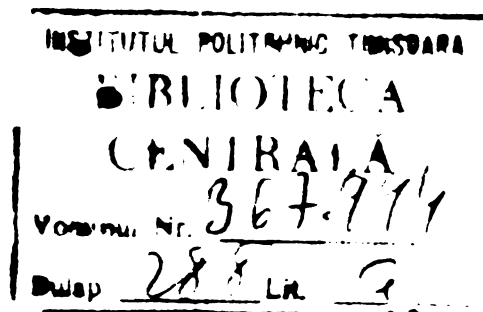 INSTITUTUL POLITEHNIC TIMISOARA
BIBLIOTECA
CENTRALĂ
Volumul Nr. 367.
Dulap Lit.